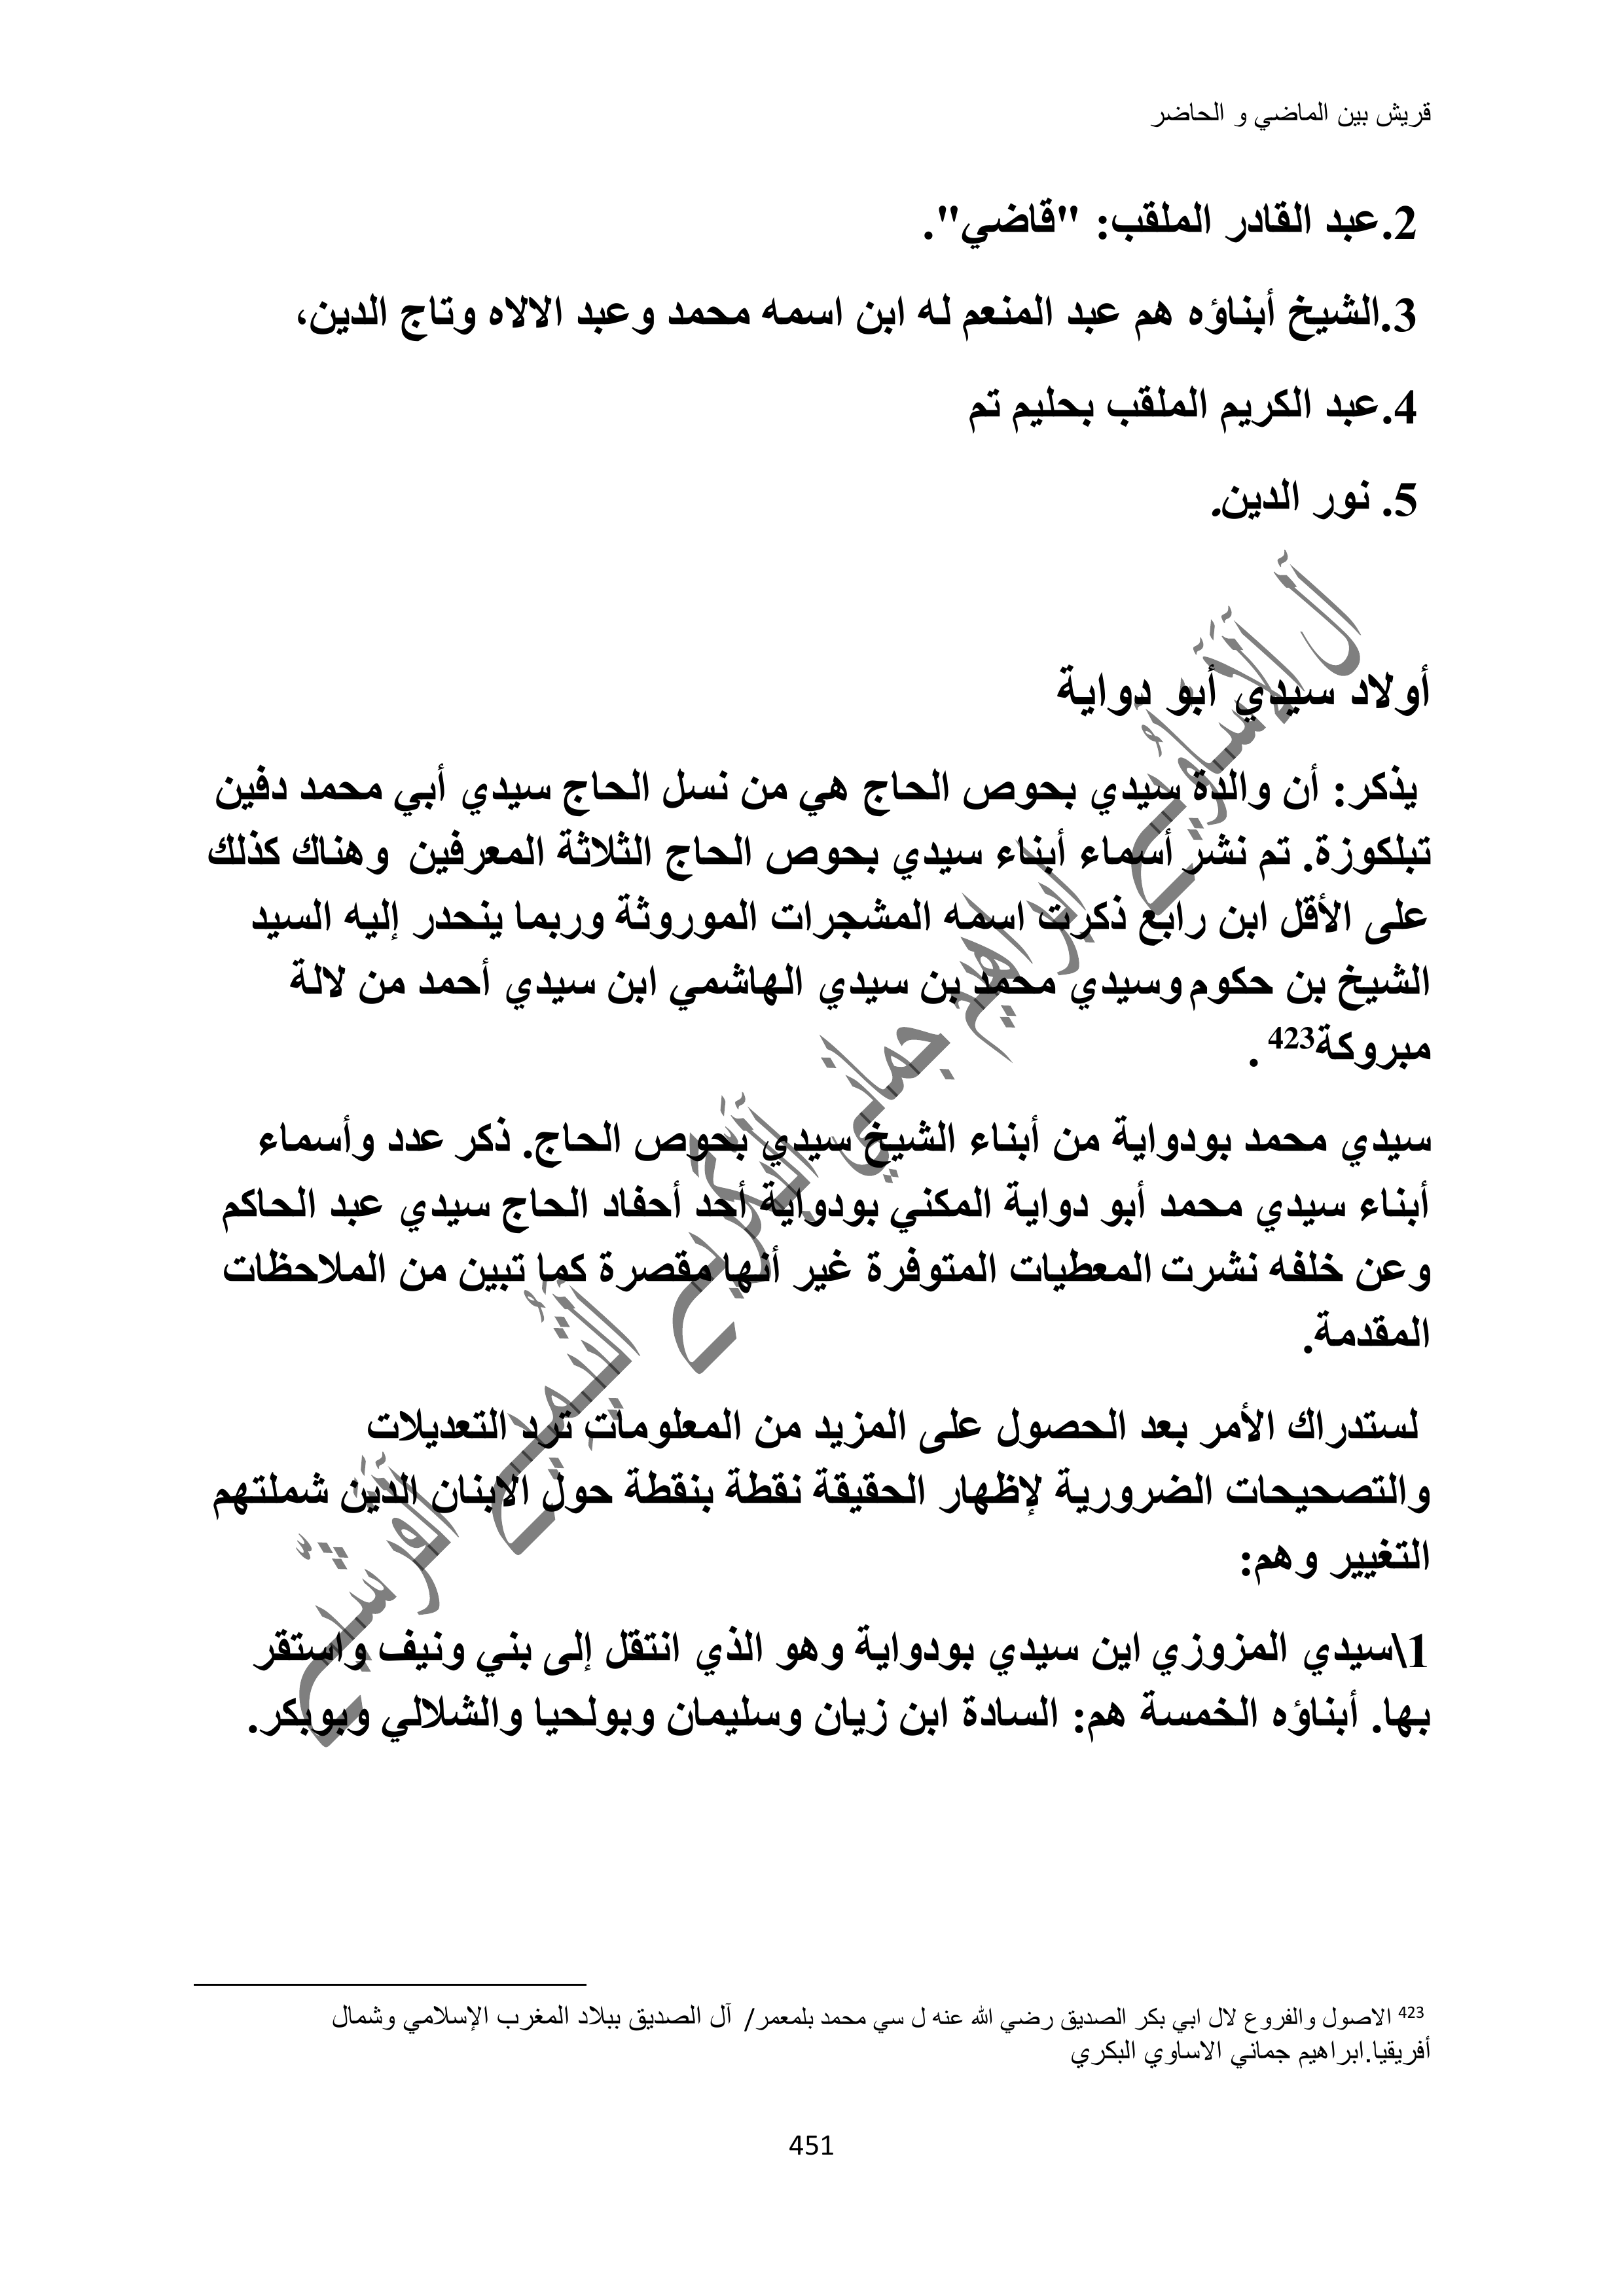 قريش بين الماضي و الحاضر
2.عبد القادر الملقب: "قاضي".
3.الشيخ أبناؤه هم عبد المنعم له ابن اسمه محمد وعبد الالاه وتاج الدين،
4.عبد الكريم الملقب بحليم تم
5. نور الدين.
أولاد سيدي أبو دواية
يذكر: أن والدة سيدي بحوص الحاج هي من نسل الحاج سيدي أبي محمد دفين
تبلكوزة. تم نشر أسماء أبناء سيدي بحوص الحاج الثلاثة المعرفين وهناك كذلك
على الأقل ابن رابع ذكرت اسمه المشجرات الموروثة وربما ينحدر إليه السيد
الشيخ بن حكوم وسيدي محمد بن سيدي الهاشمي ابن سيدي أحمد من لالة
مبروكة423 .
سيدي محمد بودواية من أبناء الشيخ سيدي بحوص الحاج. ذكر عدد وأسماء
أبناء سيدي محمد أبو دواية المكني بودواية أحد أحفاد الحاج سيدي عبد الحاكم
وعن خلفه نشرت المعطيات المتوفرة غير أنها مقصرة كما تبين من الملاحظات
المقدمة.
لستدراك الأمر بعد الحصول على المزيد من المعلومات ترد التعديلات
والتصحيحات الضرورية لإظهار الحقيقة نقطة بنقطة حول الابنان الدين شملتهم
التغيير وهم:
1\سيدي المزوزي اين سيدي بودواية وهو الذي انتقل إلى بني ونيف واستقر
بها. أبناؤه الخمسة هم: السادة ابن زيان وسليمان وبولحيا والشلالي وبوبكر.
آل الإساوي ابراهيم جماني البكري التيمي القرشي
423 الاصول والفروع لال ابي بكر الصديق رضي الله عنه ل سي محمد بلمعمر/ آل الصديق ببلاد المغرب الإسلامي وشمال
أفريقيا.ابراهيم جماني الاساوي البكري
451